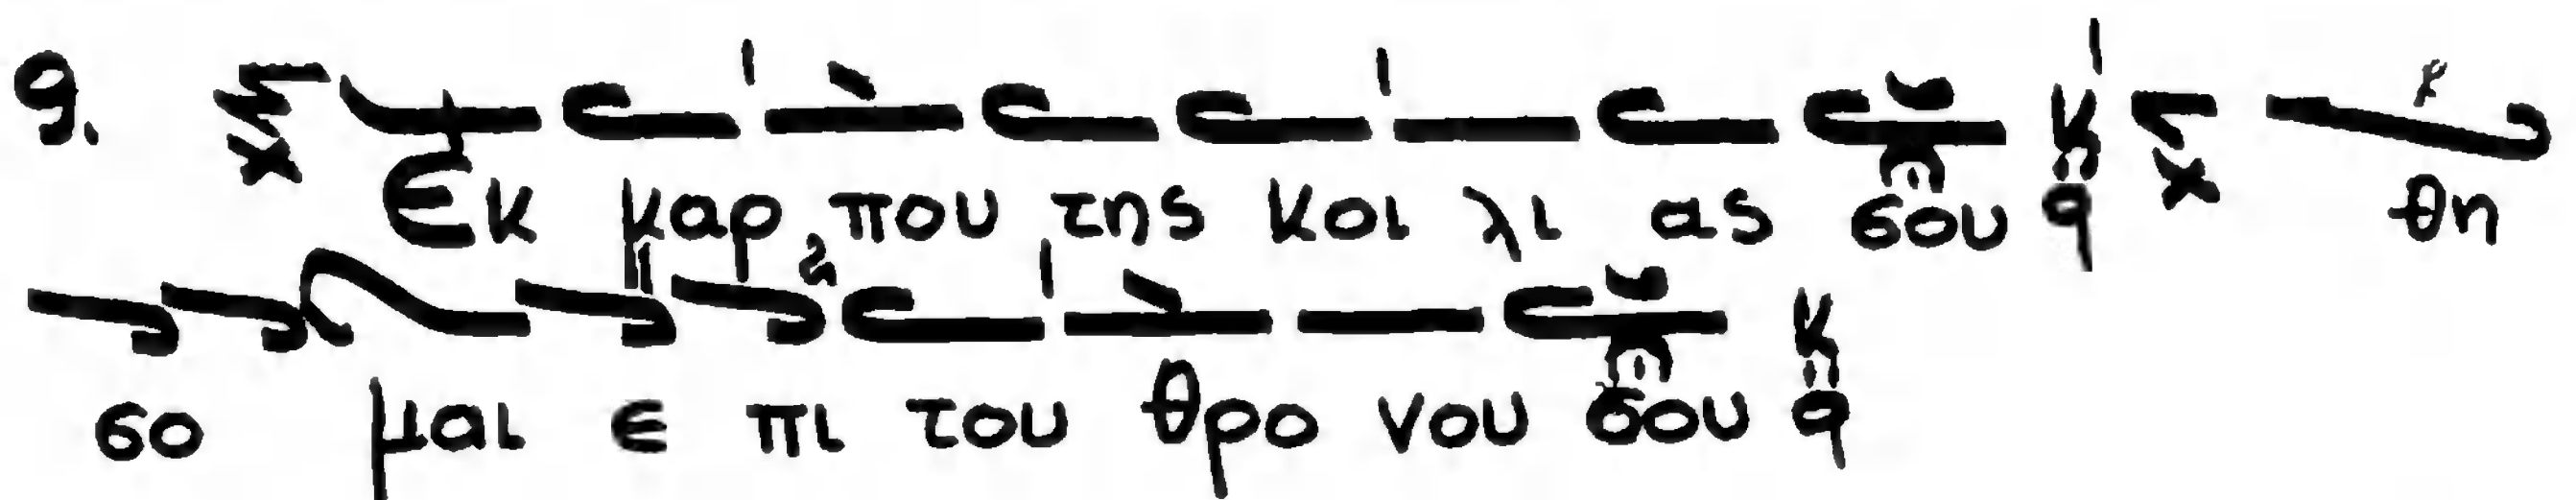 9. Εκ καρ που της κοι λι ας σου θη
σο μαι ε πι του θρο νου σου